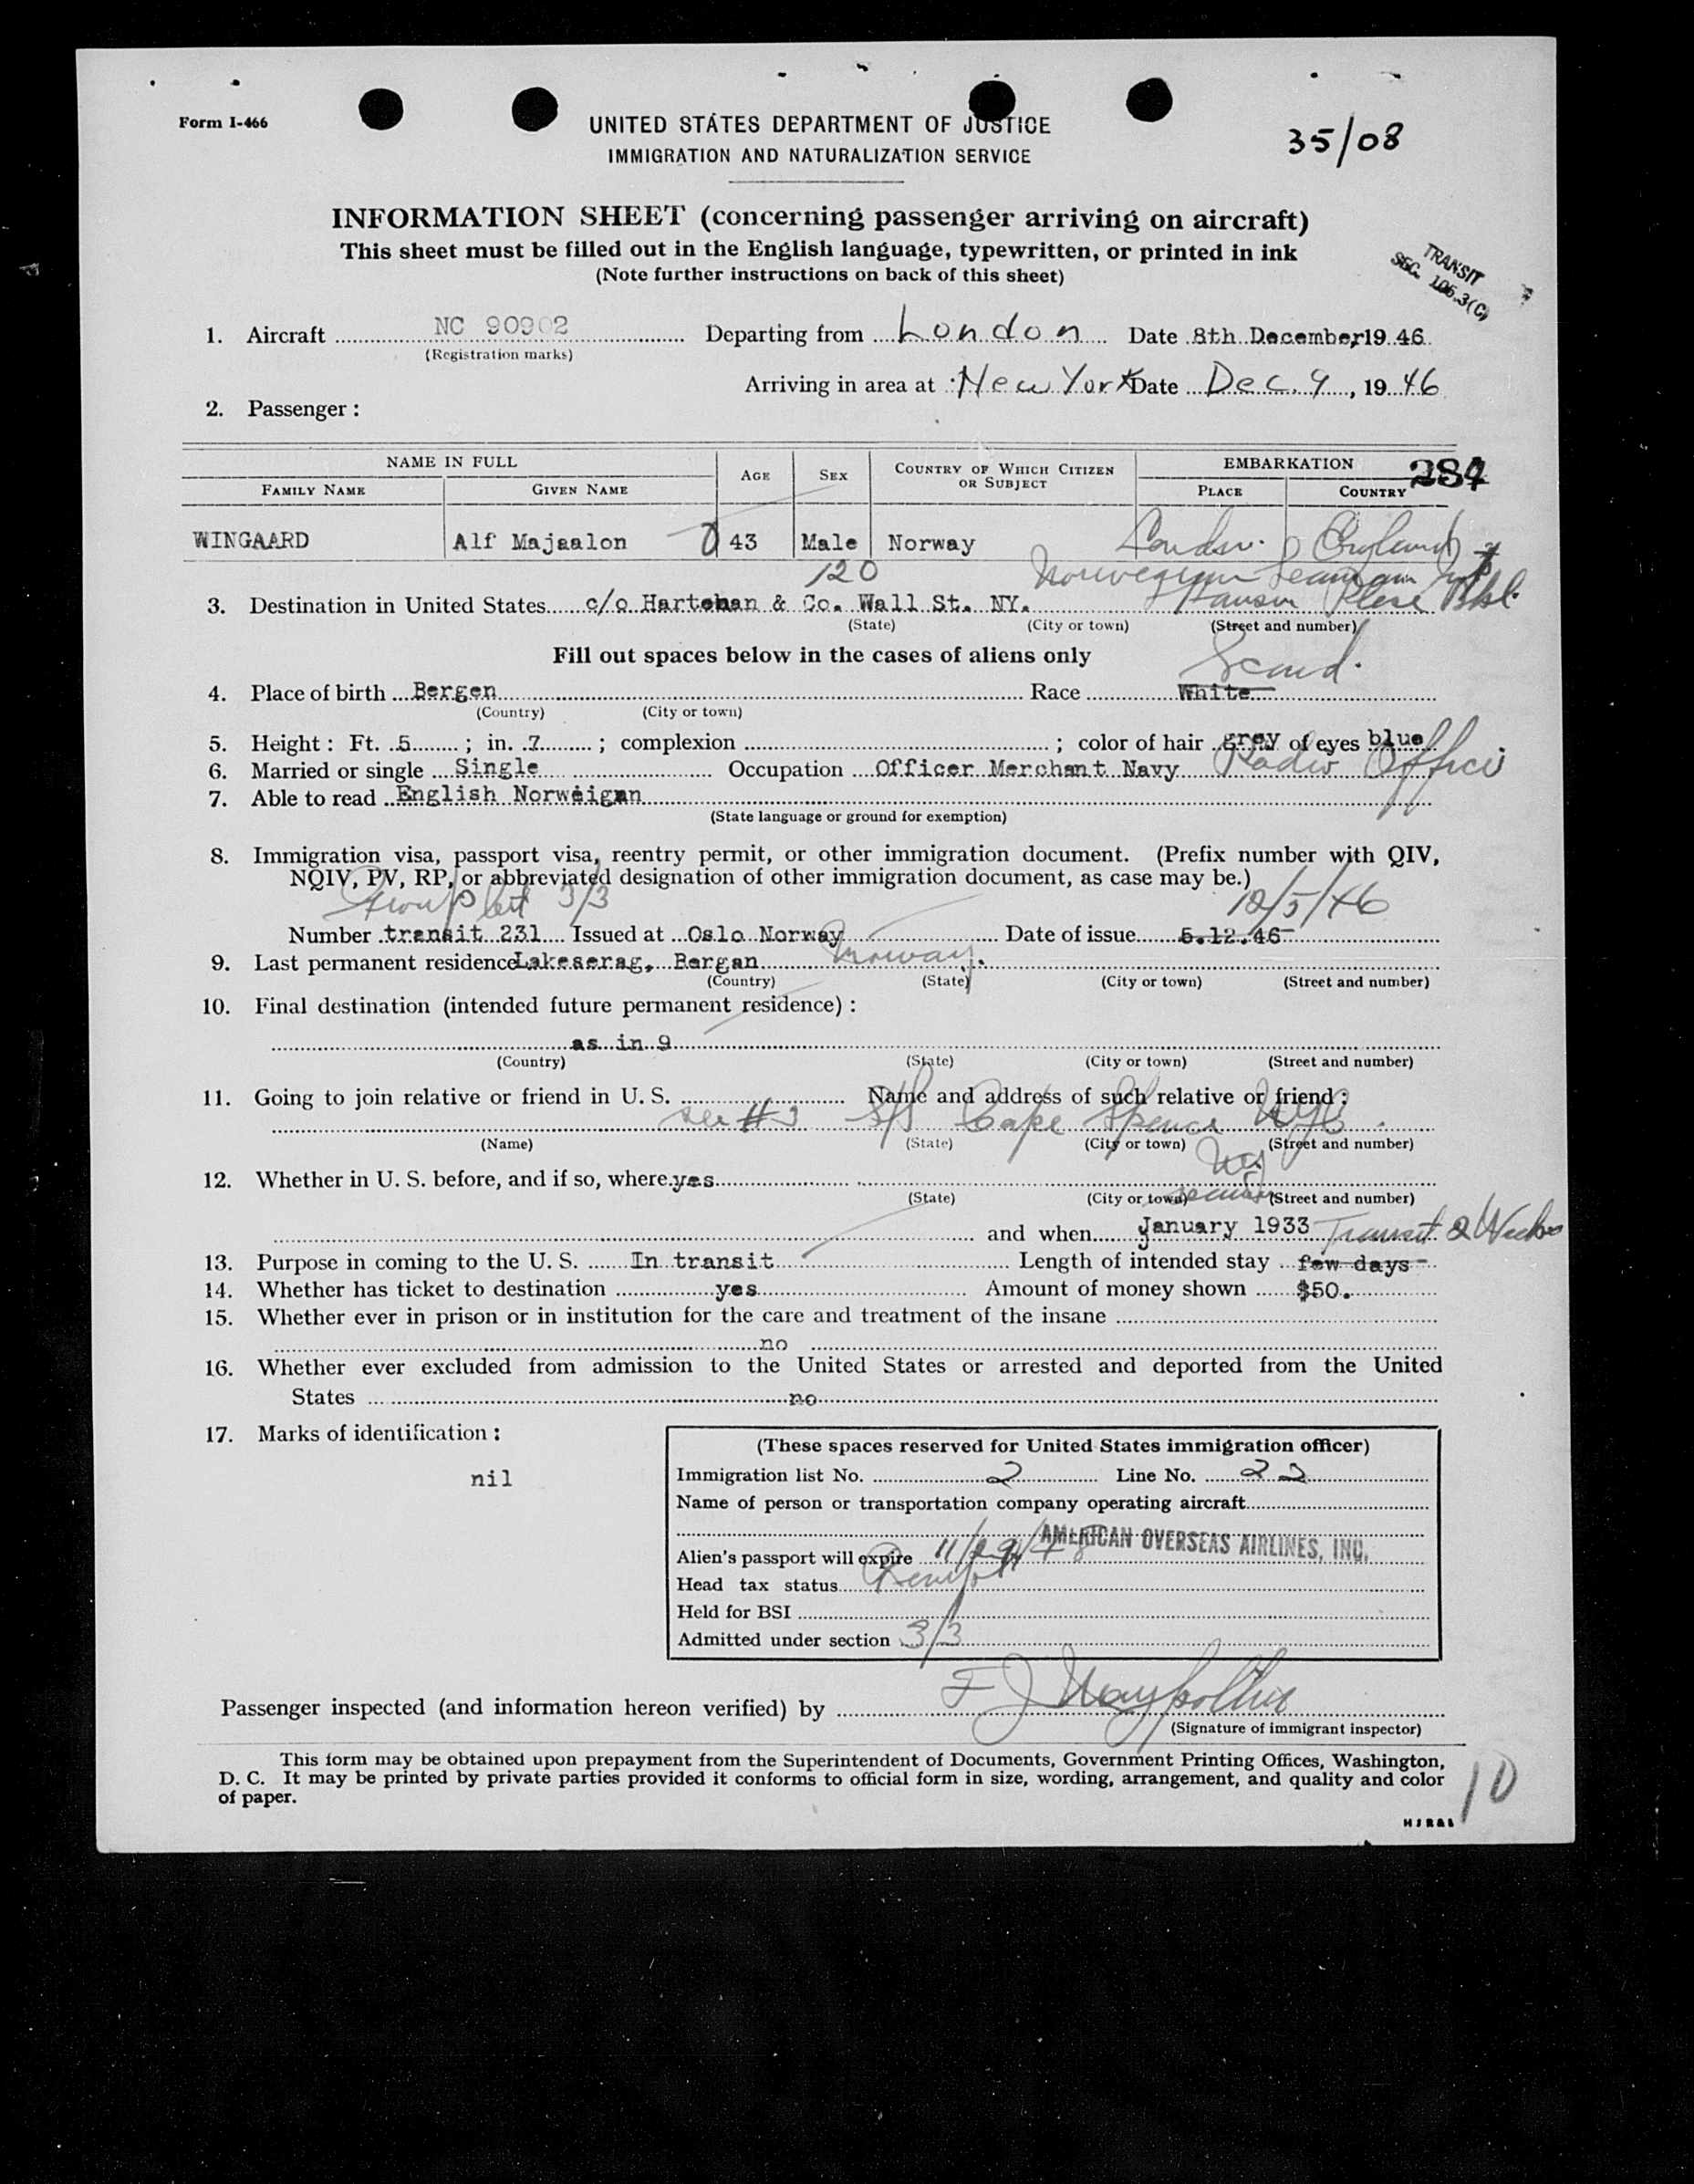 Form I-466
UNITED STATES DEPARTMENT OF JUSTICE
IMMIGRATION AND NATURALIZATION SERVICE
35/08
INFORMATION SHEET (concerning passenger arriving on aircraft)
This sheet must be filled out in the English language, typewritten, or printed in ink
(Note further instructions on back of this sheet)
TRANSIT
SEC. 105.3(C)
1. Aircraft NC 90902 Departing from London Date 8th December, 19 46
(Registration marks)
Arriving in area at New York Date Dec. 9, 19 46
2. Passenger:
NAME IN FULL AGE SEX COUNTRY OF WHICH CITIZEN OR SUBJECT EMBARKATION 284
FAMILY NAME GIVEN NAME PLACE COUNTRY
WINGAARD Alf Majaalon 43 Male Norway London England
120 Norwegian Seamen
3. Destination in United States c/o Hartehan & Co. Wall St. NY. Hanson Place Bkl.
(State) (City or town) (Street and number)
Fill out spaces below in the cases of aliens only
Scand.
4. Place of birth Bergen Race White
(Country) (City or town)
5. Height: Ft. 5; in. 7; complexion ; color of hair grey of eyes blue
6. Married or single Single Occupation Officer Merchant Navy Radio Officer
7. Able to read English Norweigan
(State language or ground for exemption)
8. Immigration visa, passport visa, reentry permit, or other immigration document. (Prefix number with QIV,
NQIV, PV, RP, or abbreviated designation of other immigration document, as case may be.)
3/3 12/5/46
Number transit 231 Issued at Oslo Norway Date of issue 5.12.46
9. Last permanent residence Lakeserag, Bergan Norway.
(Country) (State) (City or town) (Street and number)
10. Final destination (intended future permanent residence):
as in 9
(Country) (State) (City or town) (Street and number)
11. Going to join relative or friend in U. S. Name and address of such relative or friend:
see #3 S/S Cape Spence NYC
(Name) (State) (City or town) (Street and number)
12. Whether in U. S. before, and if so, where yes NY
(State) (City or town) (Street and number)
seaman
and when January 1933 Transit 2 Weeks
13. Purpose in coming to the U. S. In transit Length of intended stay few days
14. Whether has ticket to destination yes Amount of money shown $50.
15. Whether ever in prison or in institution for the care and treatment of the insane
no
16. Whether ever excluded from admission to the United States or arrested and deported from the United
States no
17. Marks of identification:
nil
(These spaces reserved for United States immigration officer)
Immigration list No. 2 Line No. 22
Name of person or transportation company operating aircraft
AMERICAN OVERSEAS AIRLINES, INC.
Alien's passport will expire
Head tax status
Held for BSI
Admitted under section 3/3
Passenger inspected (and information hereon verified) by F J
(Signature of immigrant inspector)
This form may be obtained upon prepayment from the Superintendent of Documents, Government Printing Offices, Washington,
D. C. It may be printed by private parties provided it conforms to official form in size, wording, arrangement, and quality and color
of paper.
10